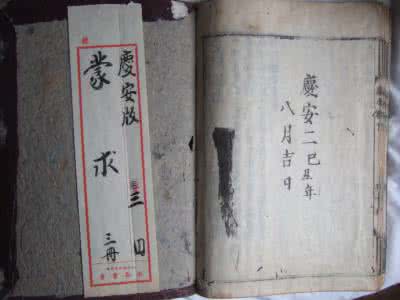 慶安版
蒙求
三冊
慶安二巳丑年
八月吉日